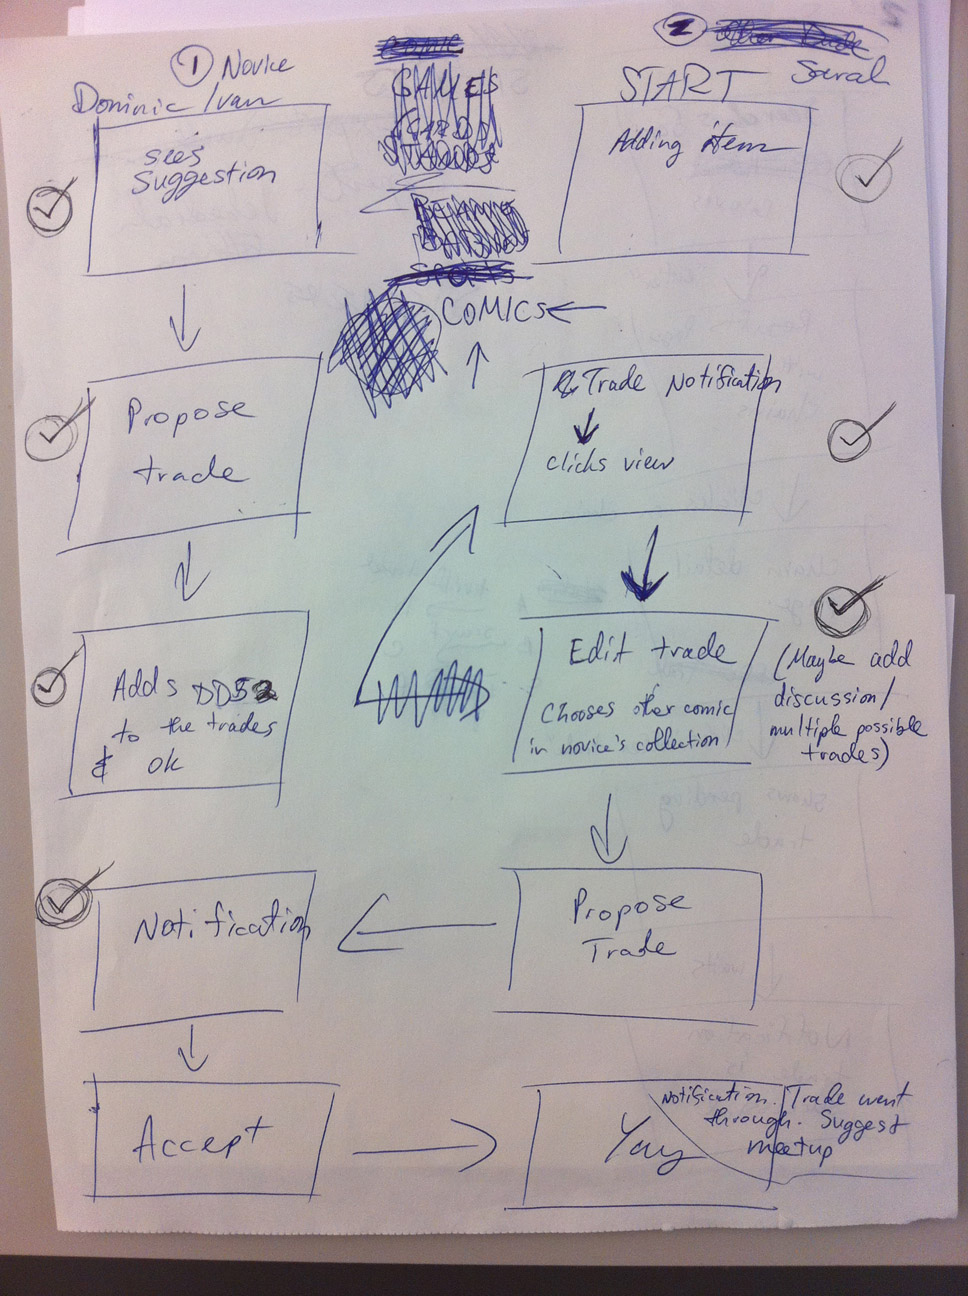 ① Novice
Dominic Ivan
sees
Suggestion
Propose
trade
Adds DD52
to the trades
& ok
Notification
Accept
GAMES
CARDS
Sports
COMICS
②
Sarah
START
Adding item
Trade Notification
clicks view
Edit trade
Chooses other comic
in novice's collection
(Maybe add
discussion/
multiple possible
trades)
Propose
Trade
Yay
Notification. Trade went
through. Suggest
meetup